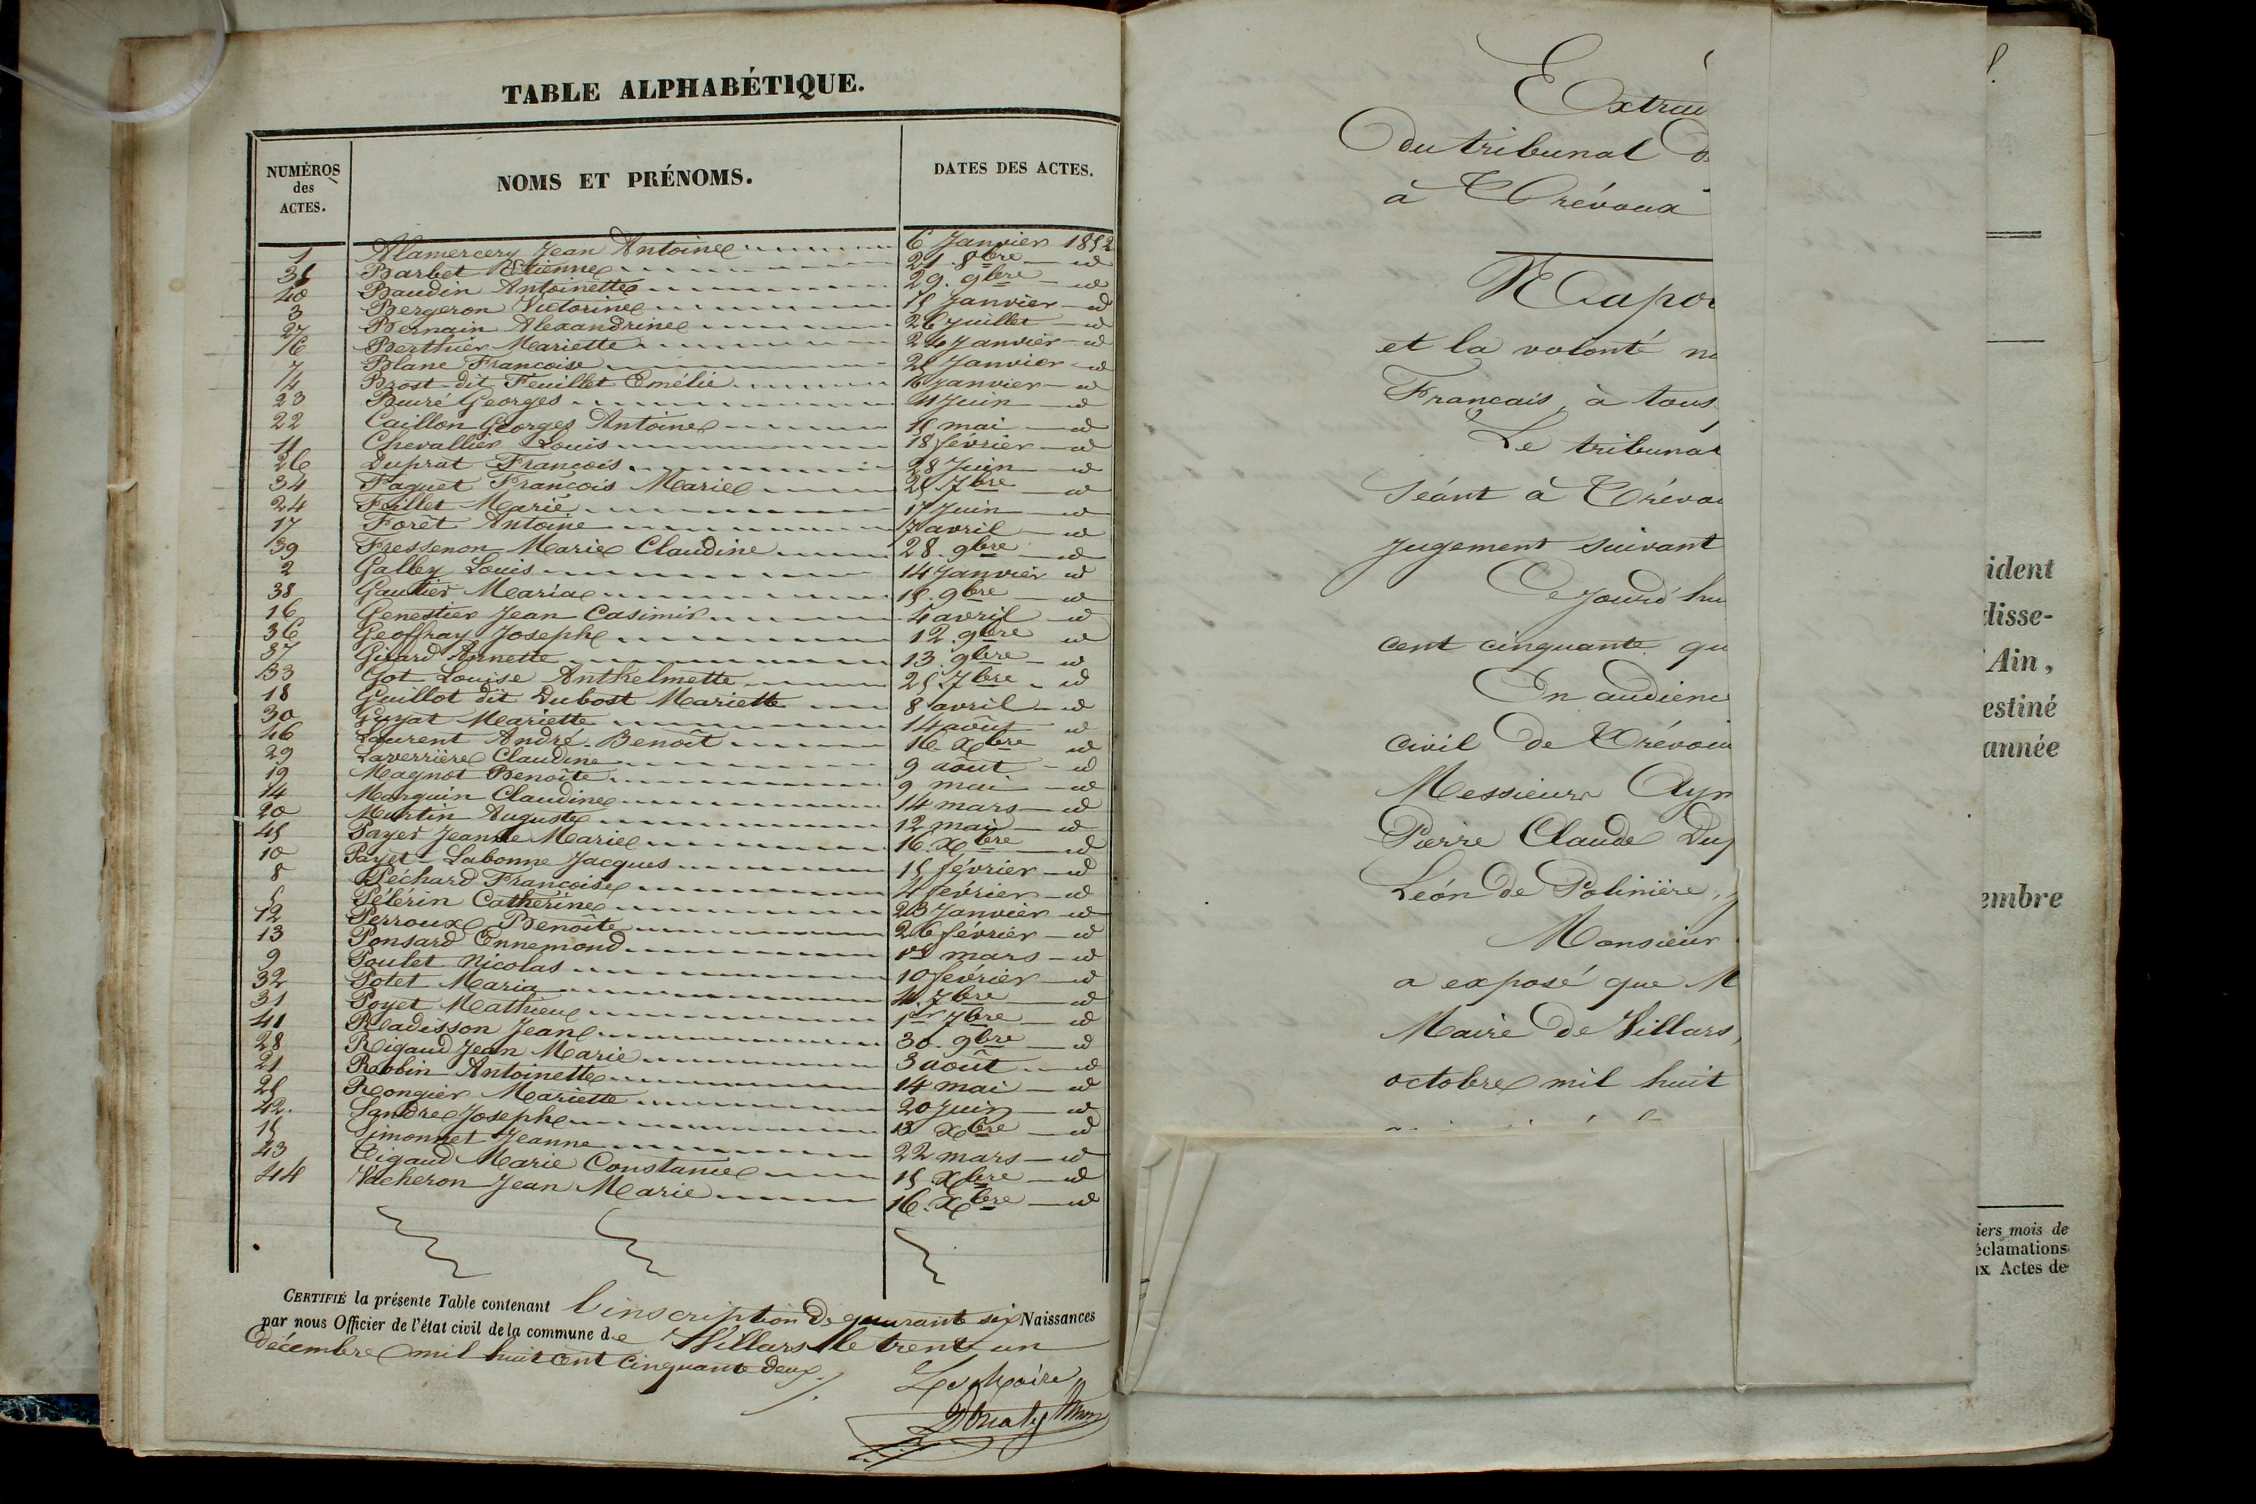 TABLE ALPHABÉTIQUE.
NUMÉROS des ACTES. NOMS ET PRÉNOMS. DATES DES ACTES.
1 Alamercery Jean Antoine 6 Janvier 1852
35 Barbet Etienne 21. 8bre id
40 Baudin Antoinette 29. 9bre id
3 Bergeron Victorine 15 Janvier id
27 Bernain Alexandrine 26 Juillet id
Berthier Mariette Janvier id
7 Blanc Francoise 25 Janvier id
4 Brost dit Feuillet Emélie 16 Janvier id
23 Buiré Georges Juin id
22 Caillon Georges Antoine 15 mai id
11 Chevallier Louis 18 février id
26 Duprat François 28 Juin id
34 Faguet François Marie 25 7bre id
24 Feillet Marie 17 Juin id
17 Forêt Antoine 7 avril id
39 Fressenon Marie Claudine 28. 9bre id
2 Galley Louis 14 Janvier id
38 Gautier Maria 15. 9bre id
16 Genestier Jean Casimir 4 avril id
36 Geoffray Joseph 12. 9bre id
37 Girard Annette 13. 9bre id
33 Got Louise Anthelmette 25. 7bre id
18 Guillot dit Dubost Mariette 8 avril id
30 Guyat Mariette 14 août id
46 Laurent André Benoît 16 Xbre id
29 Laverrière Claudine 9 août id
19 Magnot Benoîte 9 mai id
14 Marguin Claudine 14 mars id
20 Martin Auguste 12 mai id
45 Payer Jeanne Marie 16. Xbre id
10 Payet Labonne Jacques 15 février id
8 Péchard Françoise 4 février id
Pélérin Catherine 23 Janvier id
12 Perroux Benoîte 26 février id
13 Ponsard Ennemond 1er mars id
9 Poulet Nicolas 10 février id
32 Potet Maria 4. 7bre id
31 Poyet Mathieu 1er 7bre id
41 Readisson Jean 30. 9bre id
28 Rigaud Jean Marie 3 août id
21 Robbin Antoinette 14 mai id
25 Rongier Mariette 20 Juin id
42. Sandre Joseph 13 Xbre id
15 Simonnet Jeanne 22 mars id
43 Tigaud Marie Constance 15 Xbre id
44 Vacheron Jean Marie 16. Xbre id
CERTIFIÉ la présente Table contenant l'inscription de quarante six Naissances
par nous Officier de l'état civil de la commune de Villars le trente un
décembre mil huit cent cinquante deux.
Le Maire
Extrai
du tribunal d
à Trévoux
Napol
et la volonté na
Francais, à tous
Le tribunal
Séant à Trévou
jugement suivant
Cejourd'hu
cent cinquante qu
En audienc
civil de Trévou
Messieurs Aym
Pierre Claude Dup
Léon de Polinière,
Monsieur
a exposé que M
Maire de Villars,
octobre mil huit
ident
disse-
Ain,
estiné
année
embre
iers mois de
éclamations
ux Actes de